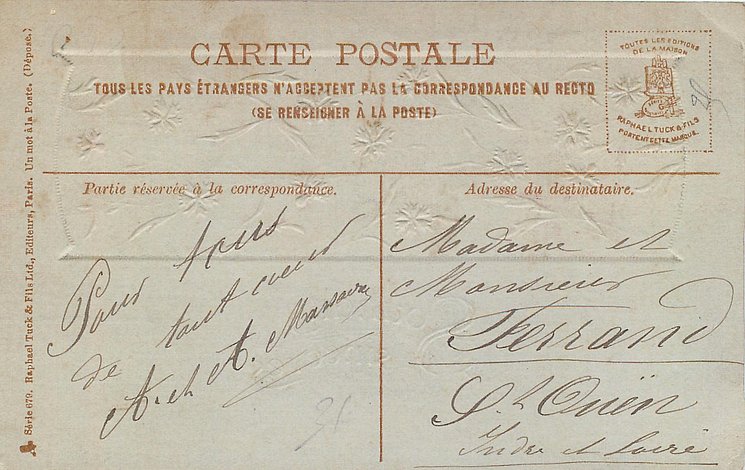 CARTE POSTALE
TOUS LES PAYS ÉTRANGERS N'ACCEPTENT PAS LA CORRESPONDANCE AU RECTO
(SE RENSEIGNER À LA POSTE)
TOUTES LES EDITIONS
DE LA MAISON
RAPHAEL TUCK & FILS
PORTENT CETTE MARQUE.
Partie réservée à la correspondance.
Pour tous
de tout coeur
A. et A.
Adresse du destinataire.
Madame et
Monsieur
Ferrand
St Ouën
Indre et Loire
Série 679. Raphael Tuck & Fils Ltd., Editeurs, Paris. Un mot à la Poste. (Déposé.)